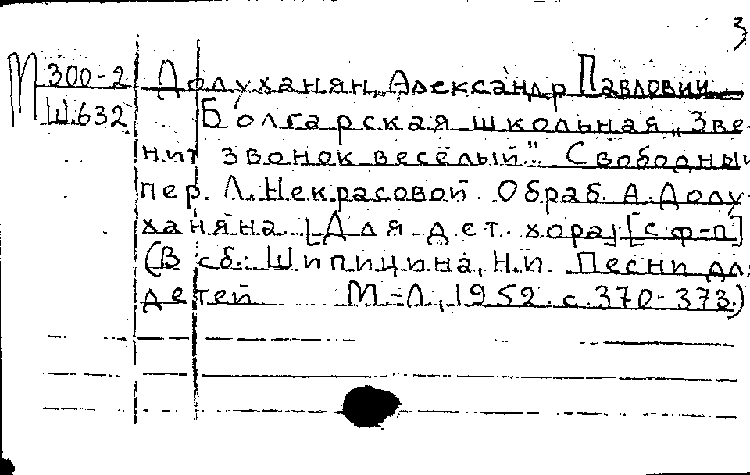 3
М 300-2 Долуханян, Александр Павлович
Ш.632 Болгарская школьная „Зве-
нит звонок весёлый". Свободный
пер. Л. Некрасовой. Обраб. А. Долу-
ханяна [Для дет. хора] [с ф-п]
(В сб.: Шипицина, Н.И. Песни для
детей М-Л, 1952. с. 370-373.)